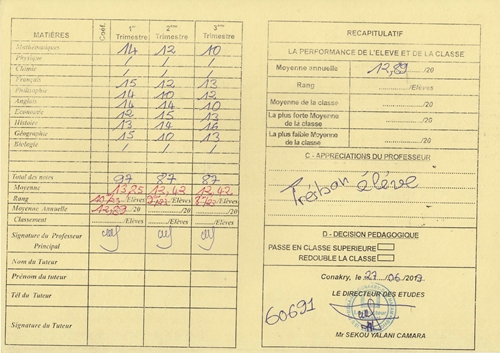 MATIÈRES Coef. 1er Trimestre 2ème Trimestre 3ème Trimestre
Mathématiques 14 12 10
Physique / / /
Chimie / / /
Français 15 12 13
Philosophie 14 10 12
Anglais 14 14 10
Economie 12 15 13
Histoire 13 14 16
Géographie 15 10 13
Biologie / / /
Total des notes 97 87 87
Moyenne 13,85 12,42 12,42
Rang /Elèves /Elèves /Elèves
Moyenne Annuelle 12,89 /20 /20 /20
Classement /Elèves /Elèves /Elèves
Signature du Professeur Principal
Nom du Tuteur
Prénom du tuteur
Tél du Tuteur
Signature du Tuteur
RECAPITULATIF
LA PERFORMANCE DE L'ELEVE ET DE LA CLASSE
Moyenne annuelle 12,89 /20
Rang /Elèves
Moyenne de la classe /20
La plus forte Moyenne de la classe /20
La plus faible Moyenne de la classe /20
C - APPRÉCIATIONS DU PROFESSEUR
Très bon élève
D - DECISION PEDAGOGIQUE
PASSE EN CLASSE SUPERIEURE
REDOUBLE LA CLASSE
Conakry, le 27 06/2017
LE DIRECTEUR DES ETUDES
60691
Mr SEKOU YALANI CAMARA